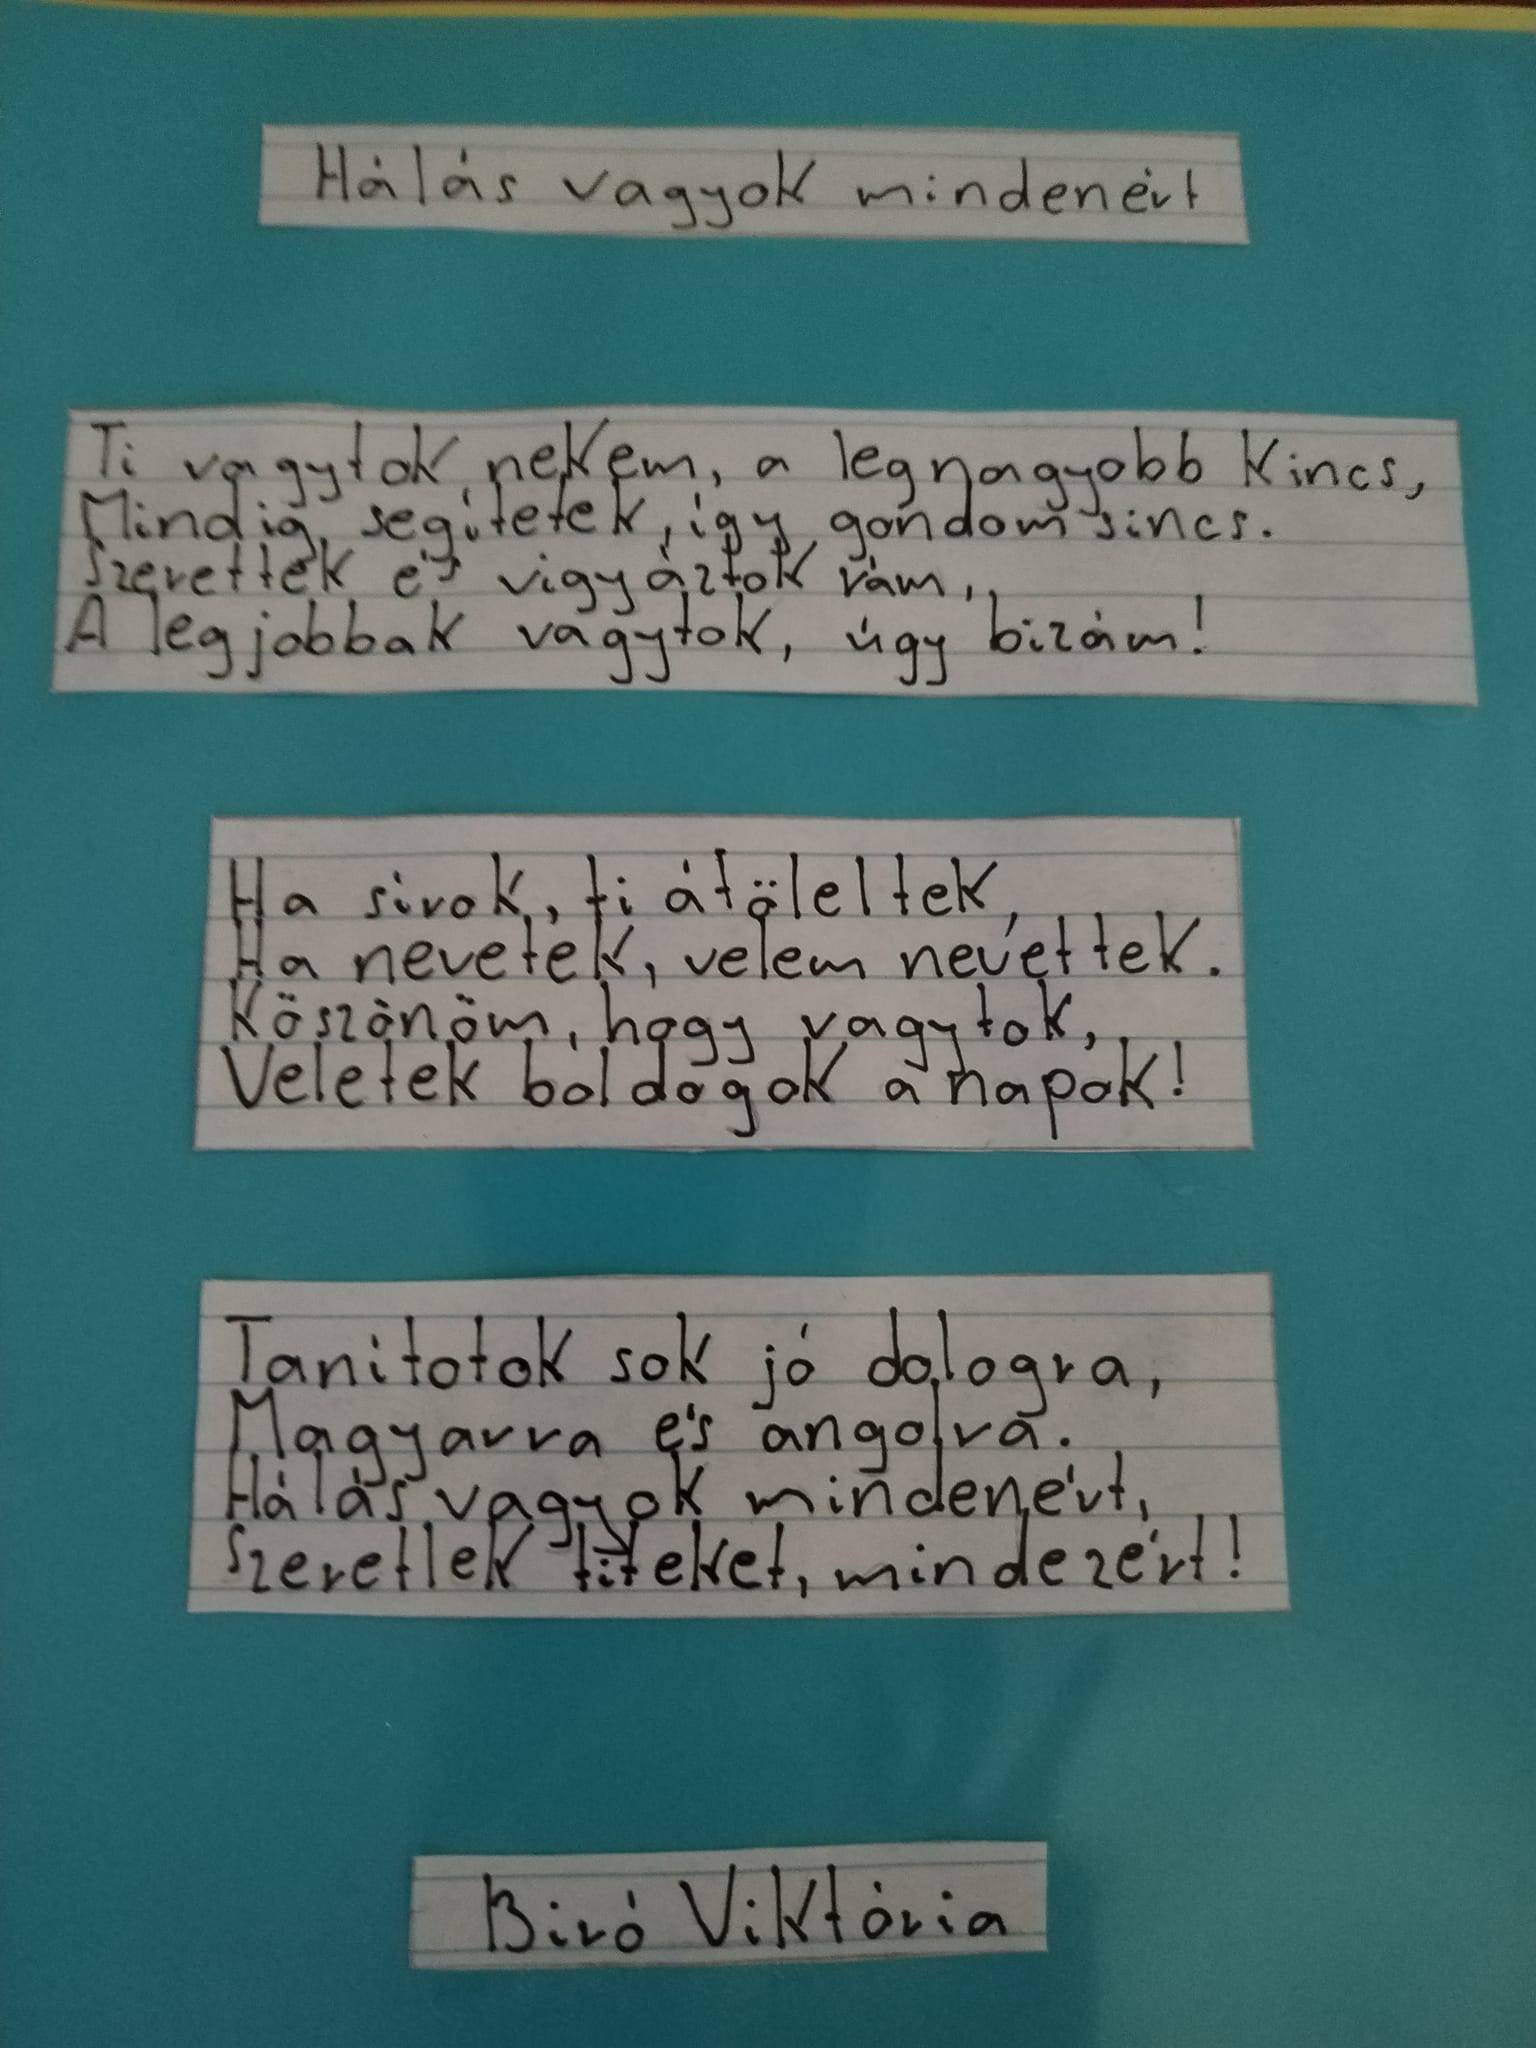 Hálás vagyok mindenért
Ti vagytok nekem, a legnagyobb kincs,
Mindig segítetek, így gondom sincs.
Szerettek és vigyáztok rám,
A legjobbak vagytok, úgy bizám!
Ha sírok, ti átöleltek,
Ha nevetek, velem nevettek.
Köszönöm, hogy vagytok,
Veletek boldogok a napok!
Tanítotok sok jó dologra,
Magyarra és angolra.
Hálás vagyok mindenért,
Szeretlek titeket, mindezért!
Biró Viktória